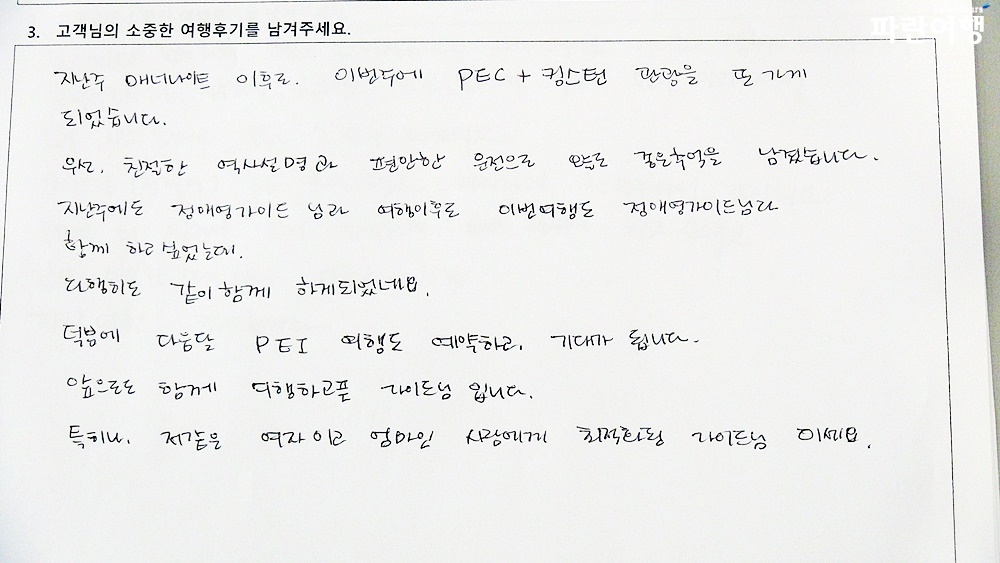 파란여행
3. 고객님의 소중한 여행후기를 남겨주세요.
지난주 매너나이트 이후로. 이번주에 PEC + 킹스턴 관광을 또 가게
되었습니다.
우선, 친절한 역사설명과 편안한 운전으로 좋은추억을 남겼습니다.
지난주에도 정애영가이드님과 여행이후로 이번여행도 정애영가이드님과
함께 하고 싶었는데.
다행히도 같이 함께 하게되었네요.
덕분에 다음달 PEI 여행도 예약하고, 기대가 됩니다.
앞으로도 함께 여행하고픈 가이드님 입니다.
특히나, 저같은 여자이고 엄마인 사람에게 최적화된 가이드님 이세요.